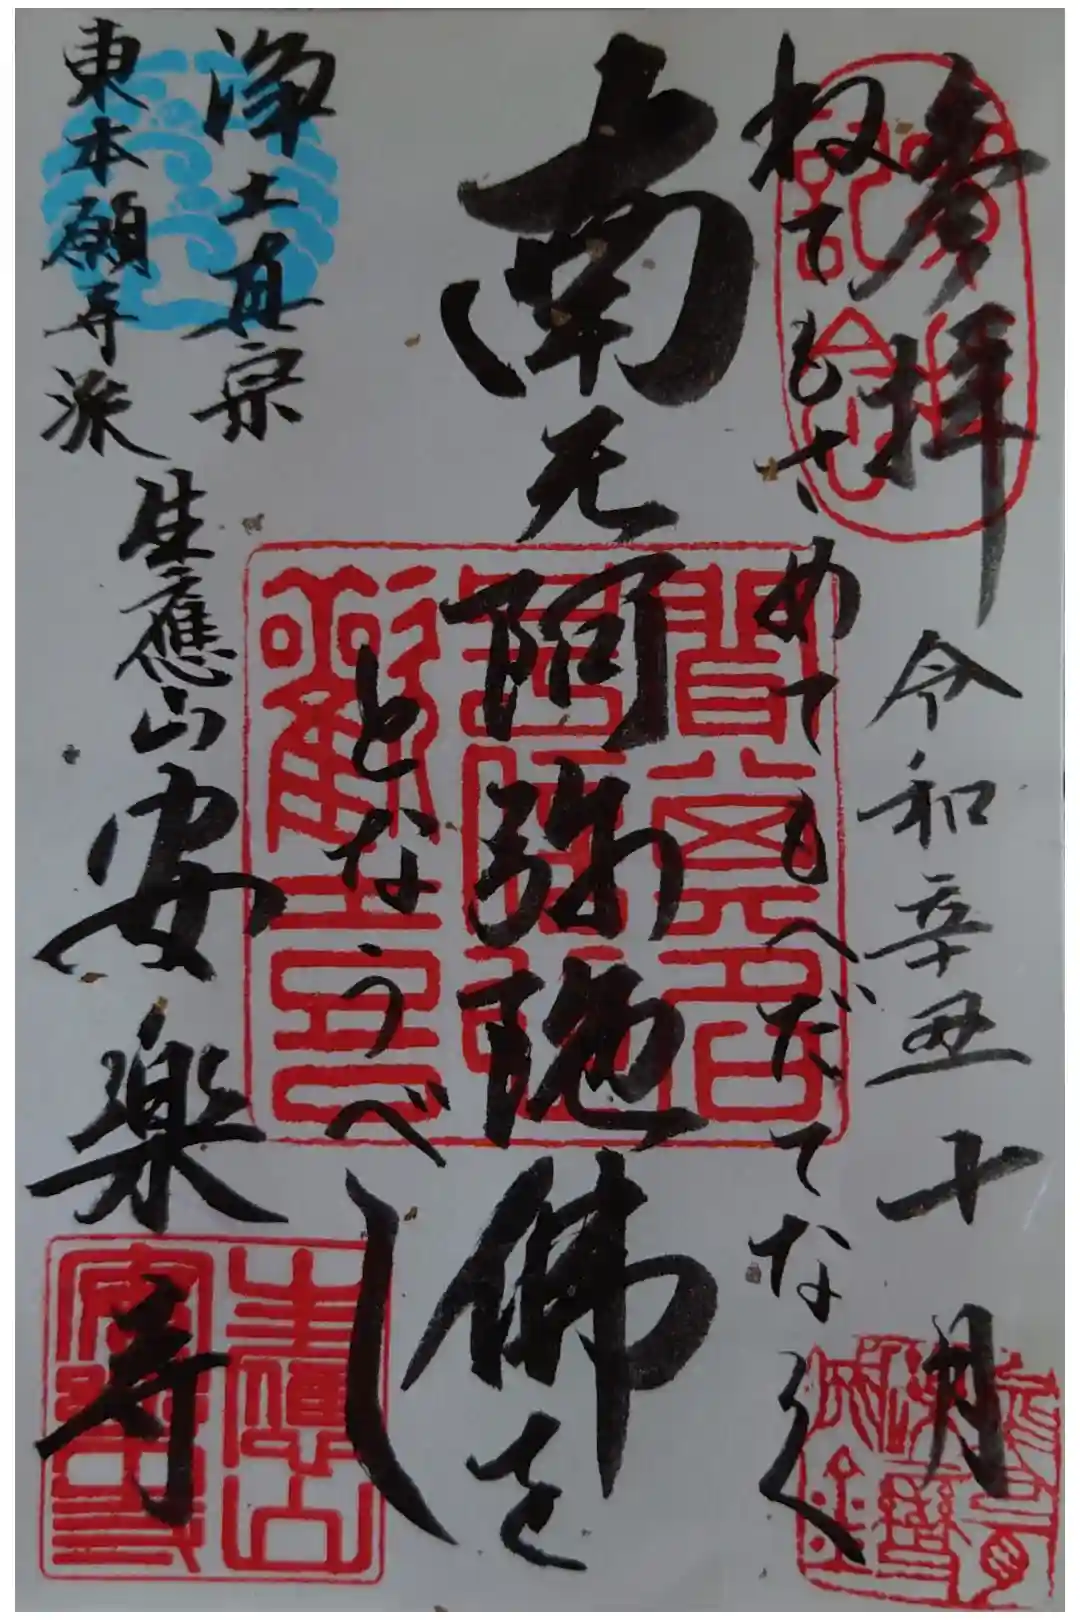 参拝 令和辛丑 十月
ねてもさめてもへだてなく
南无阿弥陀佛を
となうべし
浄土真宗
東本願寺派
生應山 安楽寺
参拝
記念
生應山
安樂寺